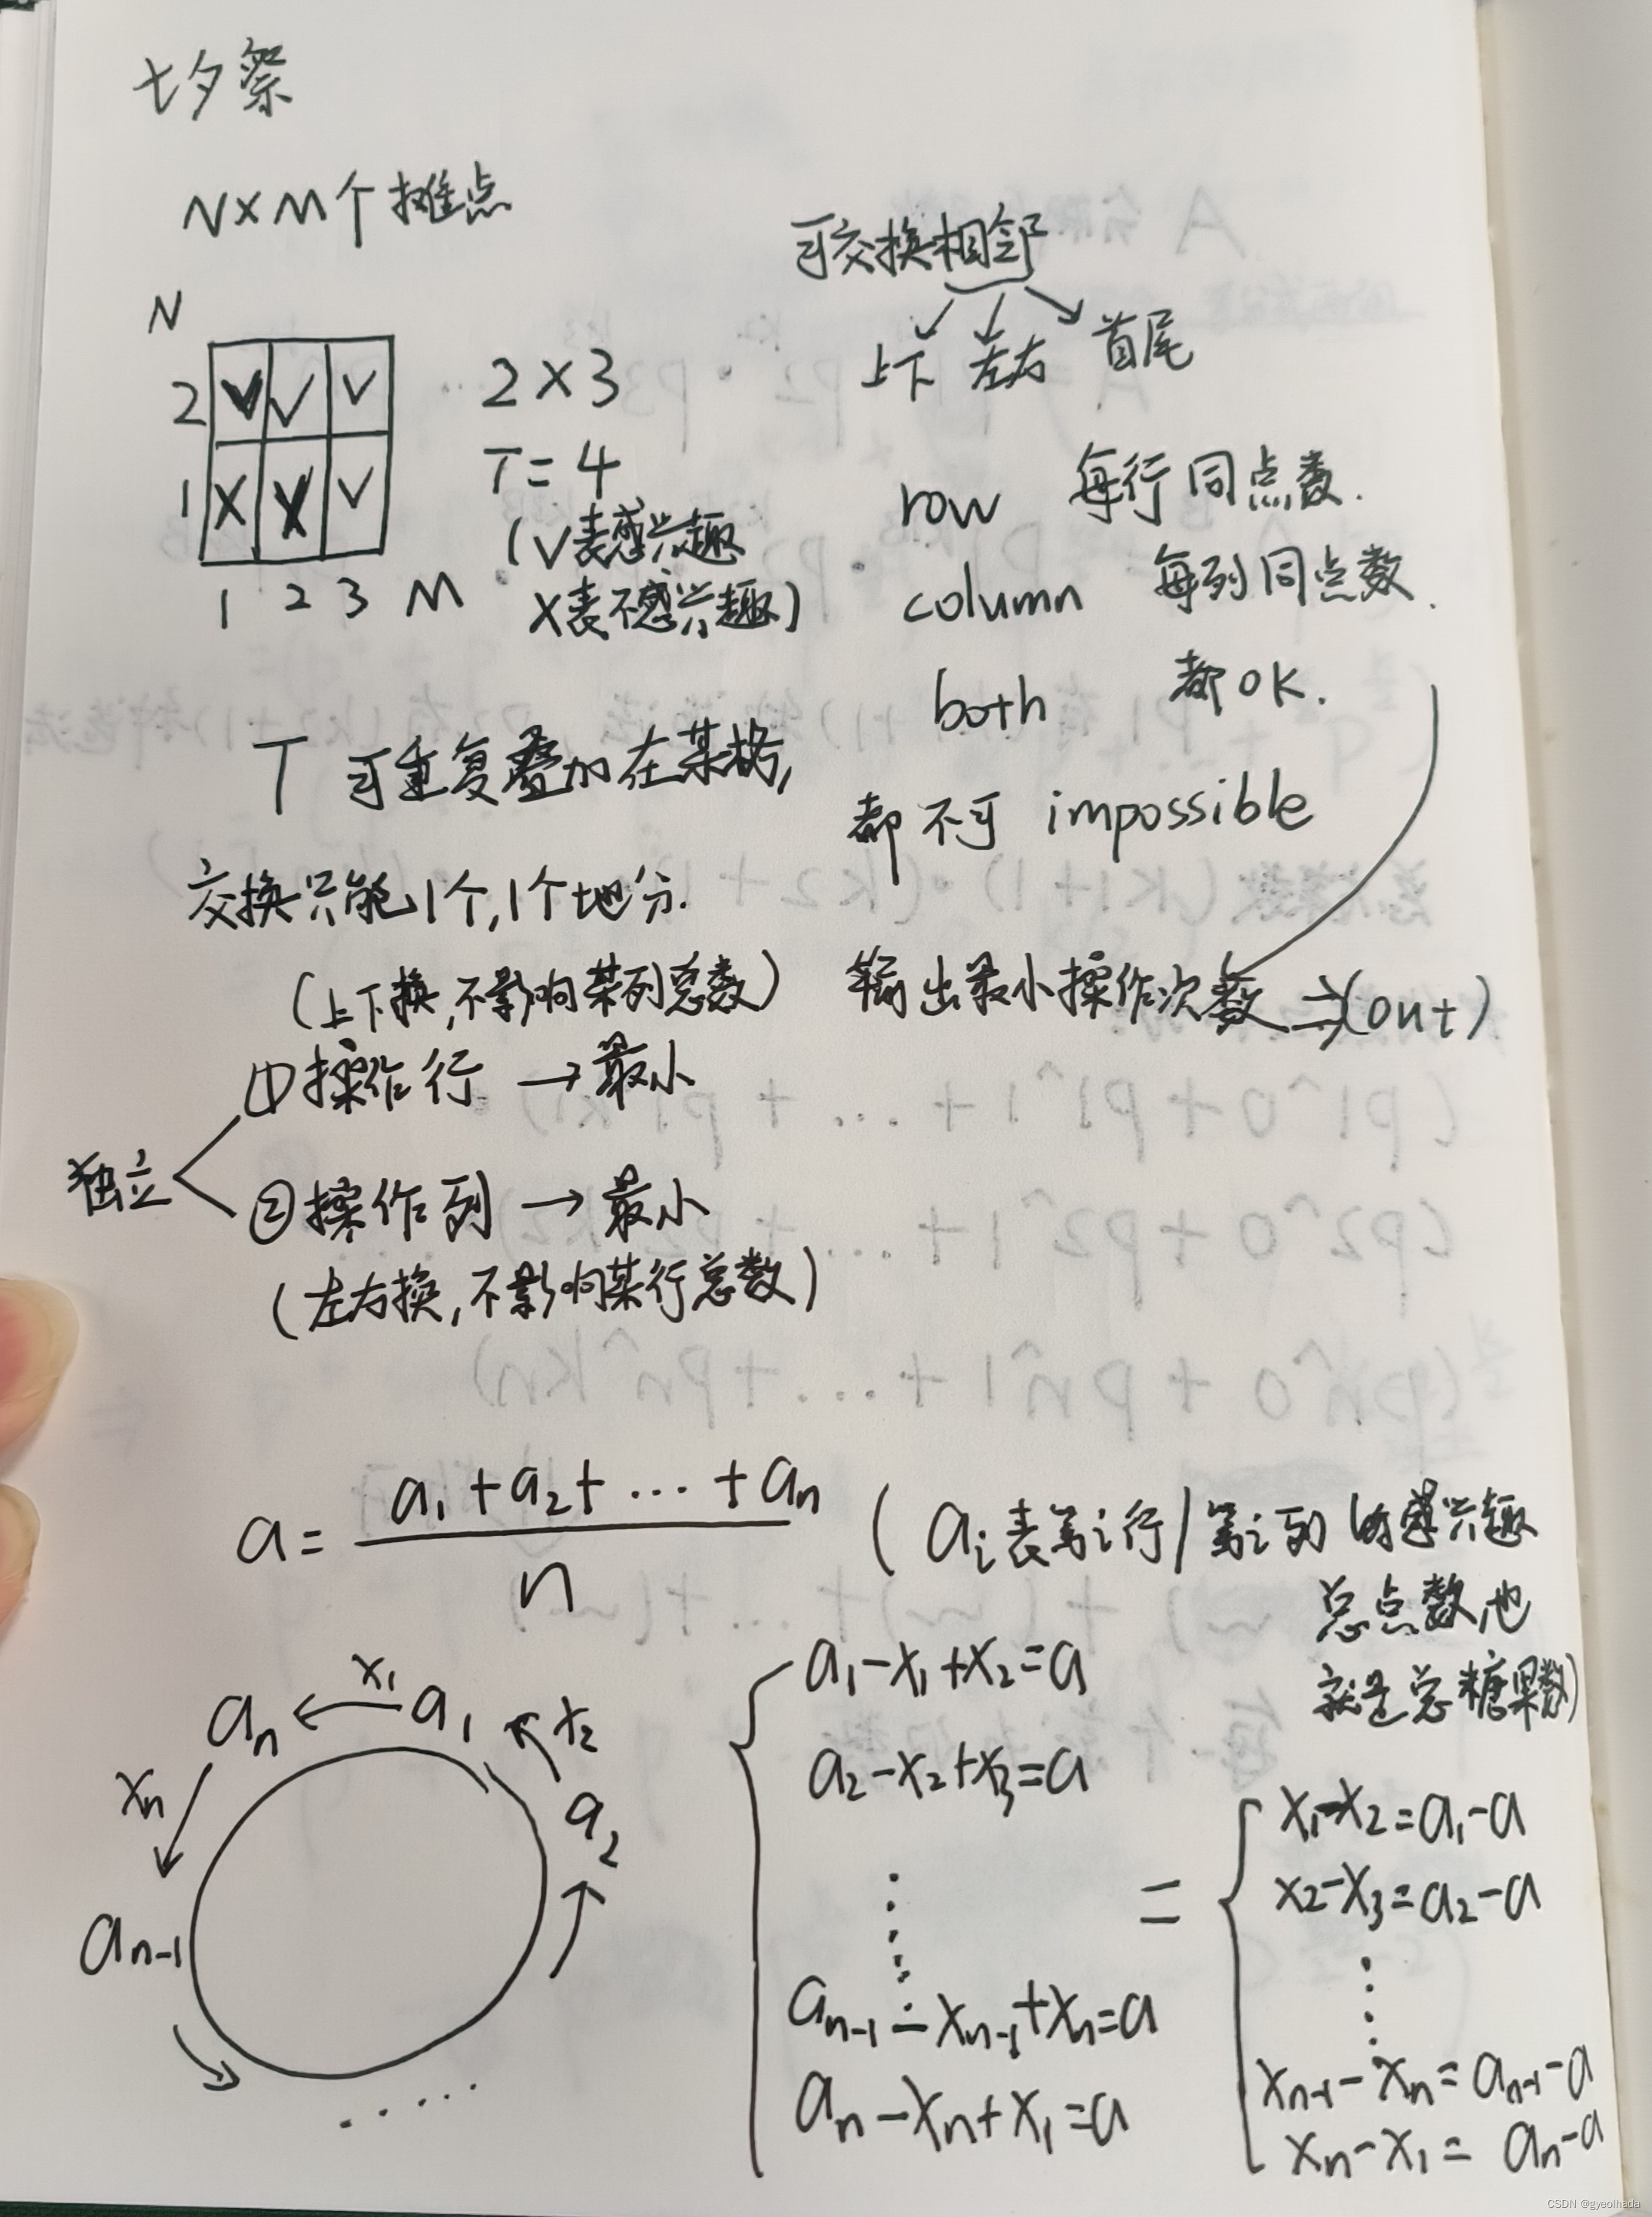 七夕祭
N×M个摊点
N
2 ✓ ✓ ✓
1 × × ✓
1 2 3 M
2×3
T=4
(✓表感兴趣
×表不感兴趣)
可交换相邻
上下 左右 首尾
row 每行同点数.
column 每列同点数.
both 都OK.
都不可 impossible
输出最小操作次数 ⇒(out)
T可重复叠加在某格,
交换只能1个,1个地
(上下换,不影响某列总数)
独立
①操作行 → 最小
②操作列 → 最小
(左右换,不影响某行总数)
a = (a₁+a₂+…+aₙ)/n
(aᵢ表第i行/第i列的感兴趣
总点数,也
就是总糖果数)
aₙ ← x₁ a₁
x₂
a₂
xₙ
aₙ₋₁
.....
a₁-x₁+x₂=a
a₂-x₂+x₃=a
⋮
aₙ₋₁-xₙ₋₁+xₙ=a
aₙ-xₙ+x₁=a
=
x₁-x₂=a₁-a
x₂-x₃=a₂-a
⋮
xₙ₋₁-xₙ=aₙ₋₁-a
xₙ-x₁=aₙ-a
CSDN @gyeolhada